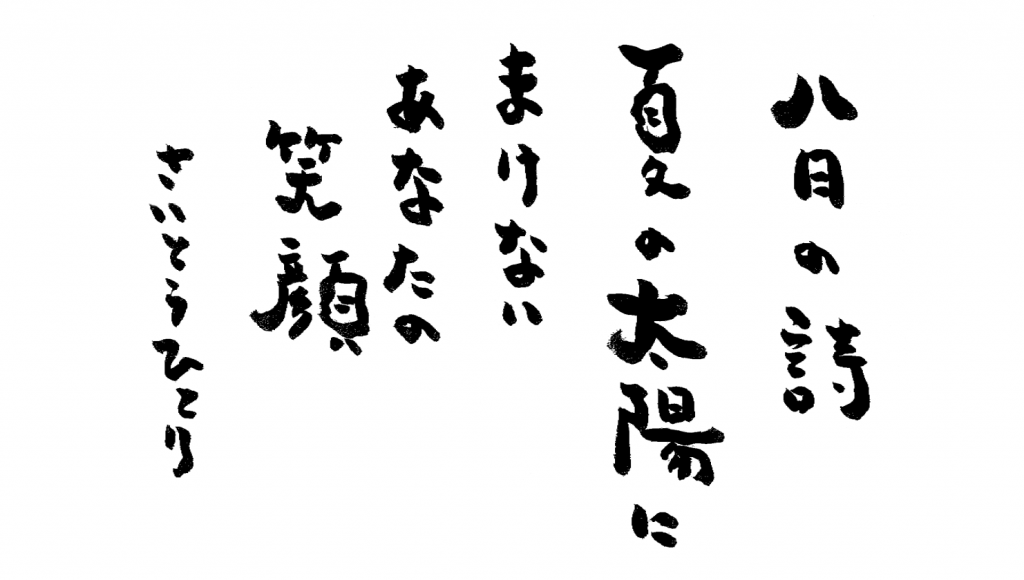 八月の詩
夏の太陽に
まけない
あなたの
笑顔
さいとうひとり